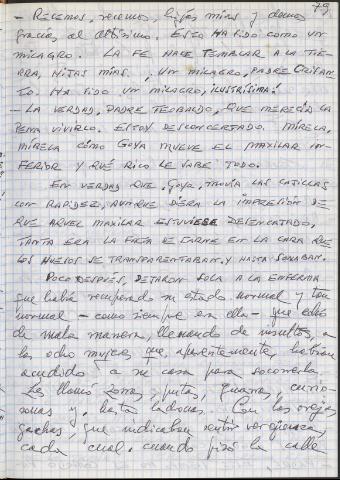 79
- Recemos, recemos, hijas mías y demos
gracias al altísimo. Esto ha sido como un
milagro. La fe hace temblar a la tie-
rra, hijas mías. ¡Un milagro, padre Crisan-
to. Ha sido un milagro, ilustrísima!
- La verdad, padre Teobaldo, que merecía la
pena vivirlo. Estoy desconcertado. Mírela,
mírela cómo Goya mueve el maxilar in-
ferior y qué rico le sabe todo.
En verdad que Goya, movía las costillas
con rapidez, aunque diera la impresión de
que aquel maxilar estuviese desencajado,
tanta era la falta de carne en la cara que
los huesos se transparentaban y hasta sonaban.
Poco después, dejaron sola a la enferma
que había recuperado su estado normal y tan
normal - como siempre en ella - que echó
de mala manera, llenando de insultos, a
las ocho mujeres que, aparentemente, habían
acudido a su casa para socorrerla.
Les llamó zorras, putas, guarras, curio-
sonas y, hasta ladronas. Con las orejas
gachas, que indicaban sentir vergüenza,
cada cual, cuando pisó la calle